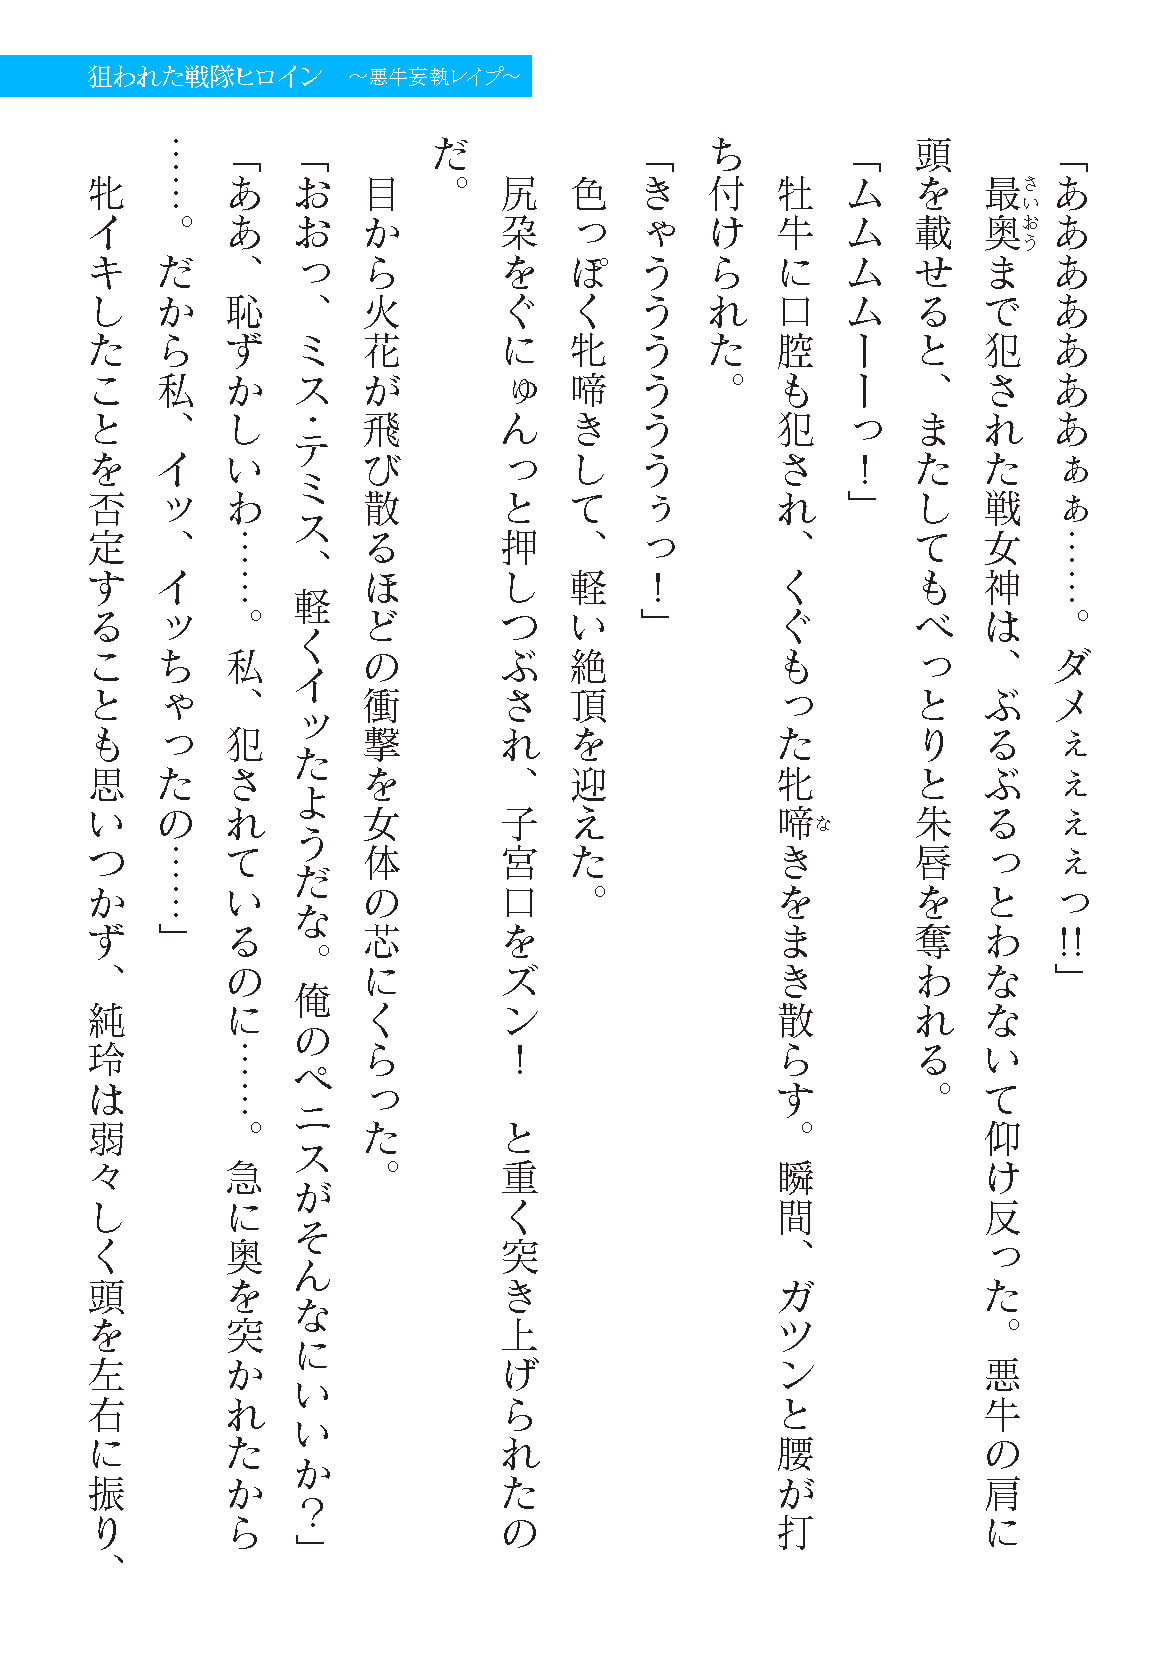 狙われた戦隊ヒロイン　～悪牛妄執レイプ～
「あああああああぁぁ……。ダメぇぇぇぇっ!!」
　最奥まで犯された戦女神は、ぶるぶるっとわなないて仰け反った。悪牛の肩に
さいおう
頭を載せると、またしてもべっとりと朱唇を奪われる。
「ムムムムーーっ！」
　牡牛に口腔も犯され、くぐもった牝啼きをまき散らす。瞬間、ガツンと腰が打
な
ち付けられた。
「きゃうううううぅっ！」
　色っぽく牝啼きして、軽い絶頂を迎えた。
　尻朶をぐにゅんっと押しつぶされ、子宮口をズン！　と重く突き上げられたの
だ。
　目から火花が飛び散るほどの衝撃を女体の芯にくらった。
「おおっ、ミス・テミス、軽くイッたようだな。俺のペニスがそんなにいいか？」
「ああ、恥ずかしいわ……。私、犯されているのに……。急に奥を突かれたから
……。だから私、イッ、イッちゃったの……」
　牝イキしたことを否定することも思いつかず、純玲は弱々しく頭を左右に振り、